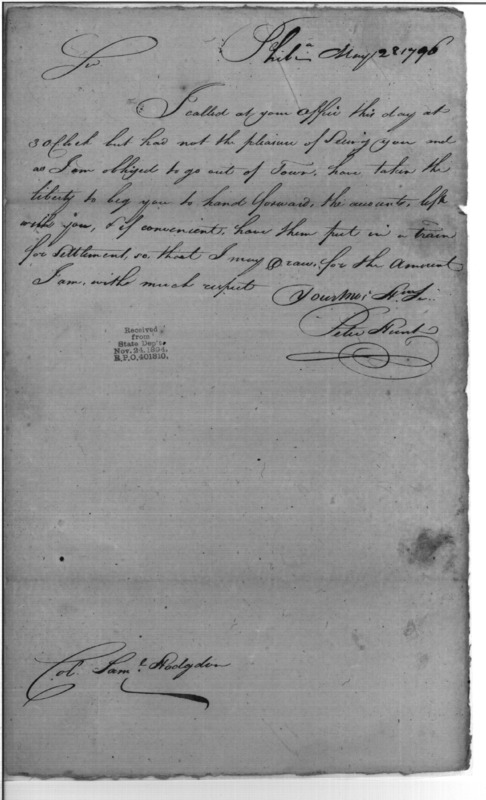 Phila. May 28 1796
Sir
I called at your office this day at
3 OClock but had not the pleasure of Seeing you and
as I am obliged to go out of Town, have taken the
liberty to beg you to hand forward, the accounts, left
with you, & if convenient, have them put in a train
for Settlement, so that I may Draw, for the Amount
I am, with much respect Your
Peter Hunt
Received
from
State Dep't.
Nov. 24, 1894.
R.P.O. 401810.
Col. Saml. Hodgdon